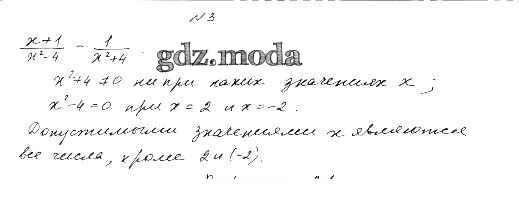 N 3
x+1/x²-4 - 1/x²+4 .
gdz.moda
x²+4 ≠0 ни при каких значениях x ;
x²-4=0 при x = 2 и x=-2 .
Допустимыми значениями x являются
все числа, кроме 2 и (-2).